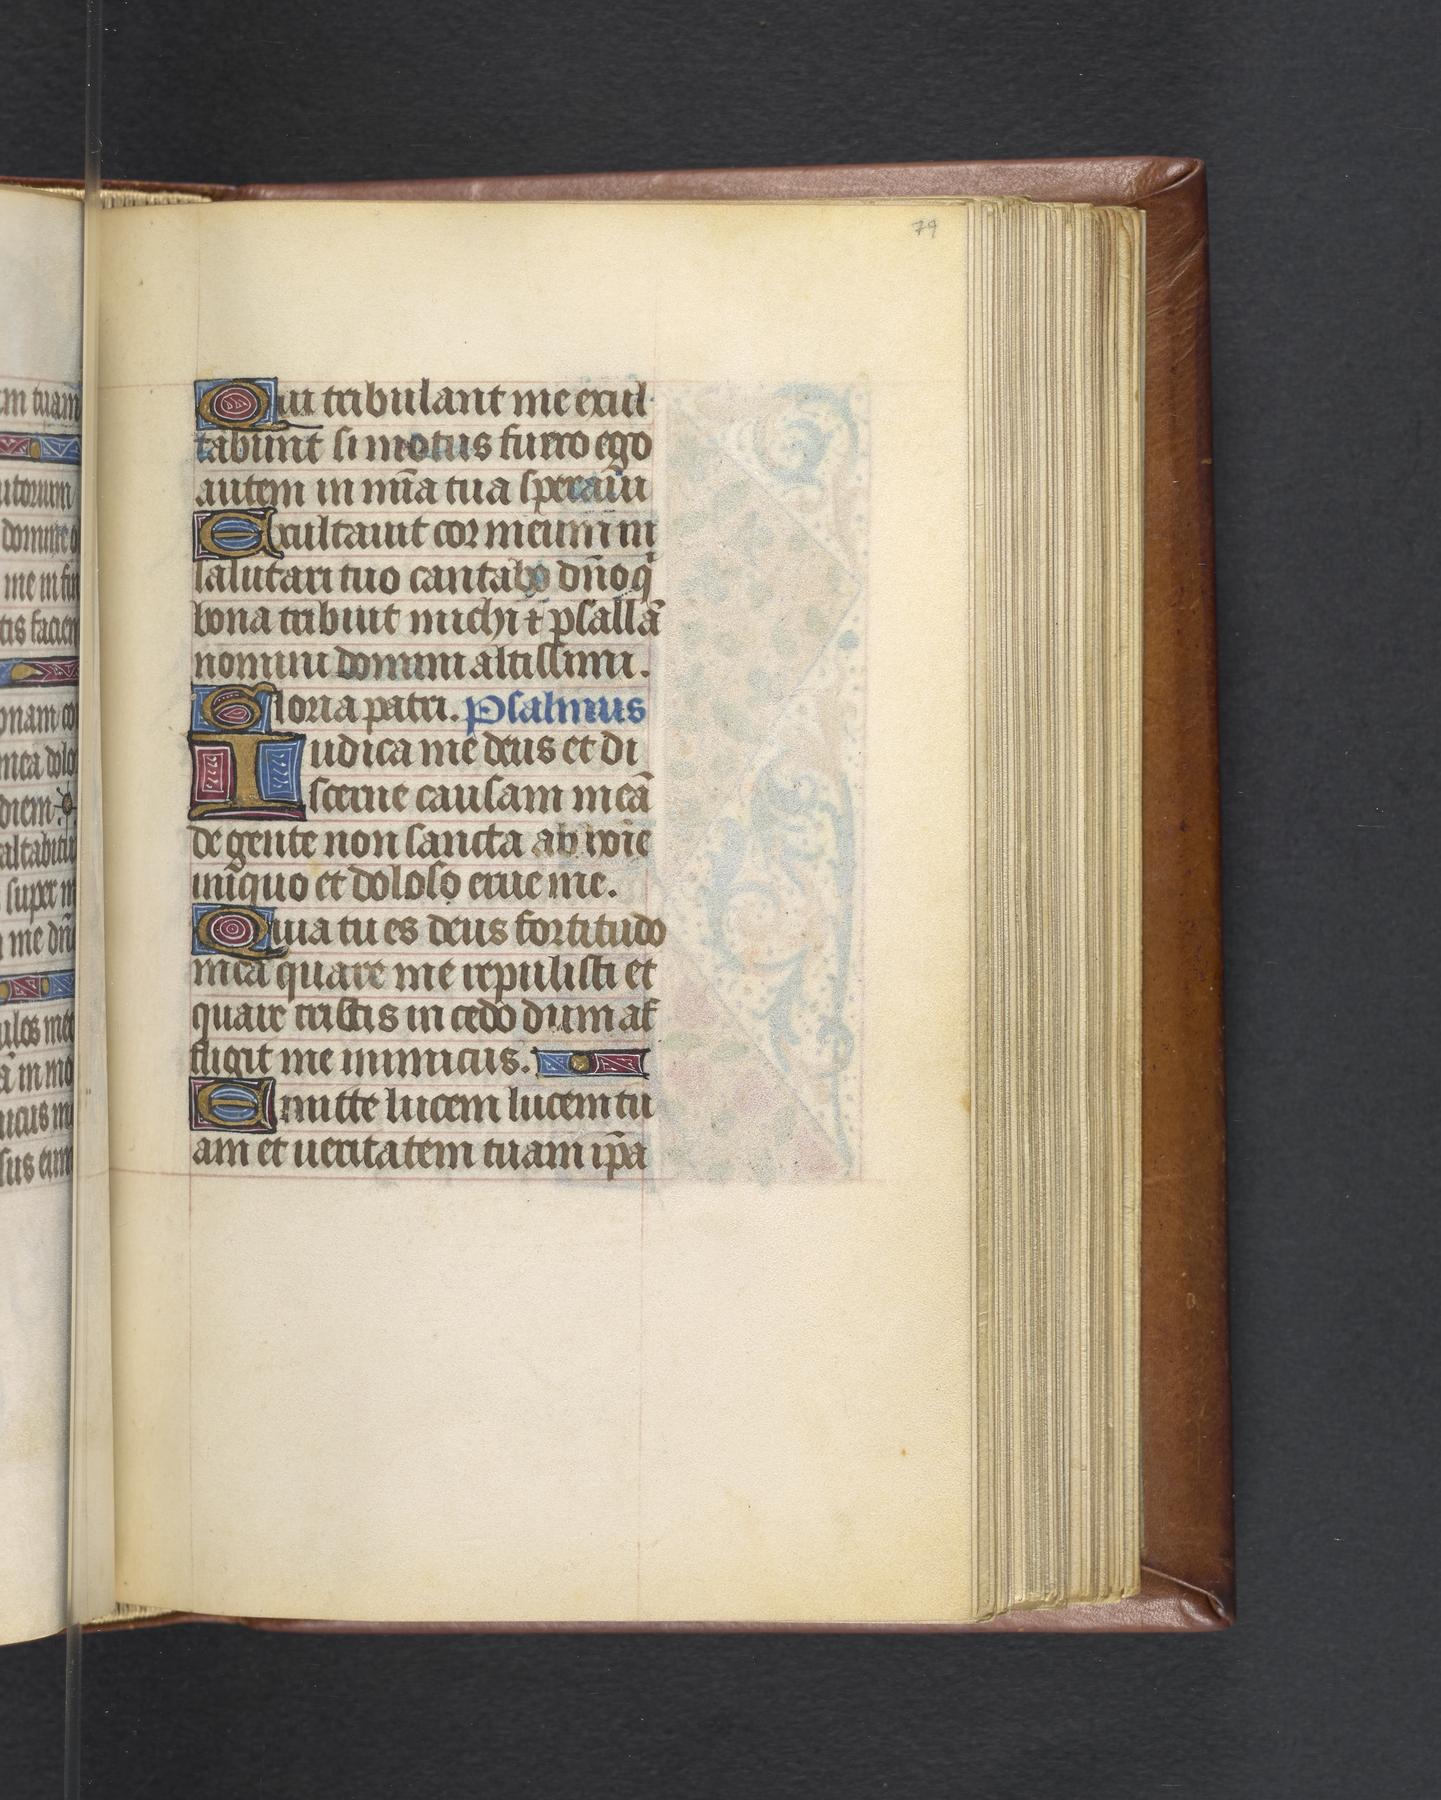 79
Qui tribulant me exul
tabunt si motus fuero ego
autem in mīa tua speraui
Exultauit cor meum in
salutari tuo cantabo dño q̇
bona tribuit michi ⁊ psallā
nomini domini altissimi.
Gloria patri. Psalmus
Iudica me deus et di
scerne causam meā
de gente non sancta ab hoīe
iniquo et doloso erue me.
Quia tu es deus fortitudo
mea quare me repulisti et
quare tristis incedo dum af
fligit me inimicus.
Emitte lucem lucem tu
am et ueritatem tuam ip̄a
m tuam
utorum
domine o
me in fin
tis facien
onam co
mea dolo
diem
altabitur
super m
me dñe
ulos meo
ā in mo
icus m
sus eum